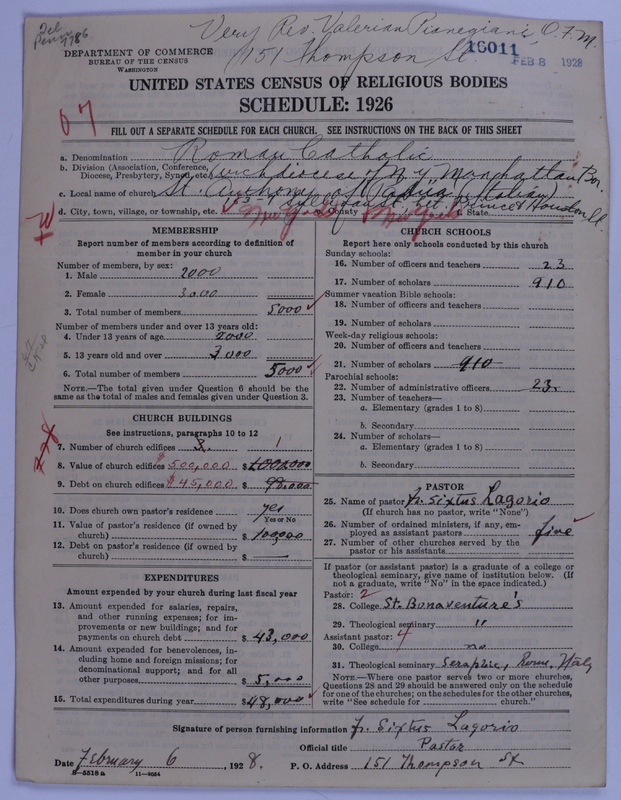 Very Rev. Valerian Pianegiani, O.F.M.
151 Thompson St
16011
FEB 8 1928
DEPARTMENT OF COMMERCE
BUREAU OF THE CENSUS
WASHINGTON
UNITED STATES CENSUS OF RELIGIOUS BODIES
SCHEDULE: 1926
FILL OUT A SEPARATE SCHEDULE FOR EACH CHURCH. SEE INSTRUCTIONS ON THE BACK OF THIS SHEET
a. Denomination Roman Catholic
b. Division (Association, Conference, Diocese, Presbytery, Synod, etc.) Archdiocese of N.Y. Manhattan Bor.
c. Local name of church St. Anthony of Padua (Italian)
Sullivan St. bet. Prince & Houston St.
d. City, town, village, or township, etc. New York County New York f. State
MEMBERSHIP
Report number of members according to definition of member in your church
Number of members, by sex:
1. Male 2000
2. Female 3000
3. Total number of members 5000
Number of members under and over 13 years old:
4. Under 13 years of age 2000
5. 13 years old and over 3000
6. Total number of members 5000
NOTE.—The total given under Question 6 should be the same as the total of males and females given under Question 3.
CHURCH BUILDINGS
See instructions, paragraphs 10 to 12
7. Number of church edifices 1
8. Value of church edifices $500,000 $
9. Debt on church edifices $45,000 $ 90,000
10. Does church own pastor's residence yes
Yes or No
11. Value of pastor's residence (if owned by church) $ 100,000
12. Debt on pastor's residence (if owned by church) $ —
EXPENDITURES
Amount expended by your church during last fiscal year
13. Amount expended for salaries, repairs, and other running expenses; for improvements or new buildings; and for payments on church debt $ 43,000
14. Amount expended for benevolences, including home and foreign missions; for denominational support; and for all other purposes $ 5,000
15. Total expenditures during year $ 48,000
CHURCH SCHOOLS
Report here only schools conducted by this church
Sunday schools:
16. Number of officers and teachers 23
17. Number of scholars 910
Summer vacation Bible schools:
18. Number of officers and teachers
19. Number of scholars
Week-day religious schools:
20. Number of officers and teachers
21. Number of scholars 910
Parochial schools:
22. Number of administrative officers 23.
23. Number of teachers—
a. Elementary (grades 1 to 8)
b. Secondary
24. Number of scholars—
a. Elementary (grades 1 to 8)
b. Secondary
PASTOR
25. Name of pastor Fr. Sixtus Lagorio
(If church has no pastor, write "None")
26. Number of ordained ministers, if any, employed as assistant pastors five
27. Number of other churches served by the pastor or his assistants
If pastor (or assistant pastor) is a graduate of a college or theological seminary, give name of institution below. (If not a graduate, write "No" in the space indicated.)
Pastor: 2
28. College St. Bonaventure's
29. Theological seminary "
Assistant pastor: 4
30. College no
31. Theological seminary Seraphic, Rome, Italy
NOTE.—Where one pastor serves two or more churches, Questions 28 and 29 should be answered only on the schedule for one of the churches; on the schedules for the other churches, write "See schedule for church."
Signature of person furnishing information Fr. Sixtus Lagorio
Official title Pastor
Date February 6, 1928. P. O. Address 151 Thompson St
8—5518 a 11—9054